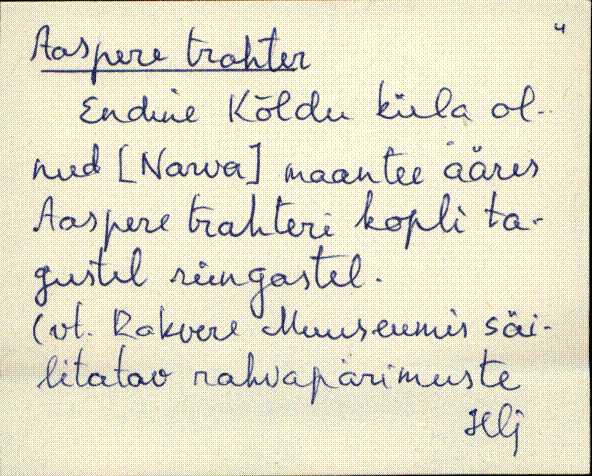 4
Aaspere trahter
Endine Kõldu küla ol-
nud [Narva] maantee ääres
Aaspere trahteri kopli ta-
gustel ringastel.
(vt. Rakvere Muuseumis säi-
litatav rahvapärimuste
Hlj